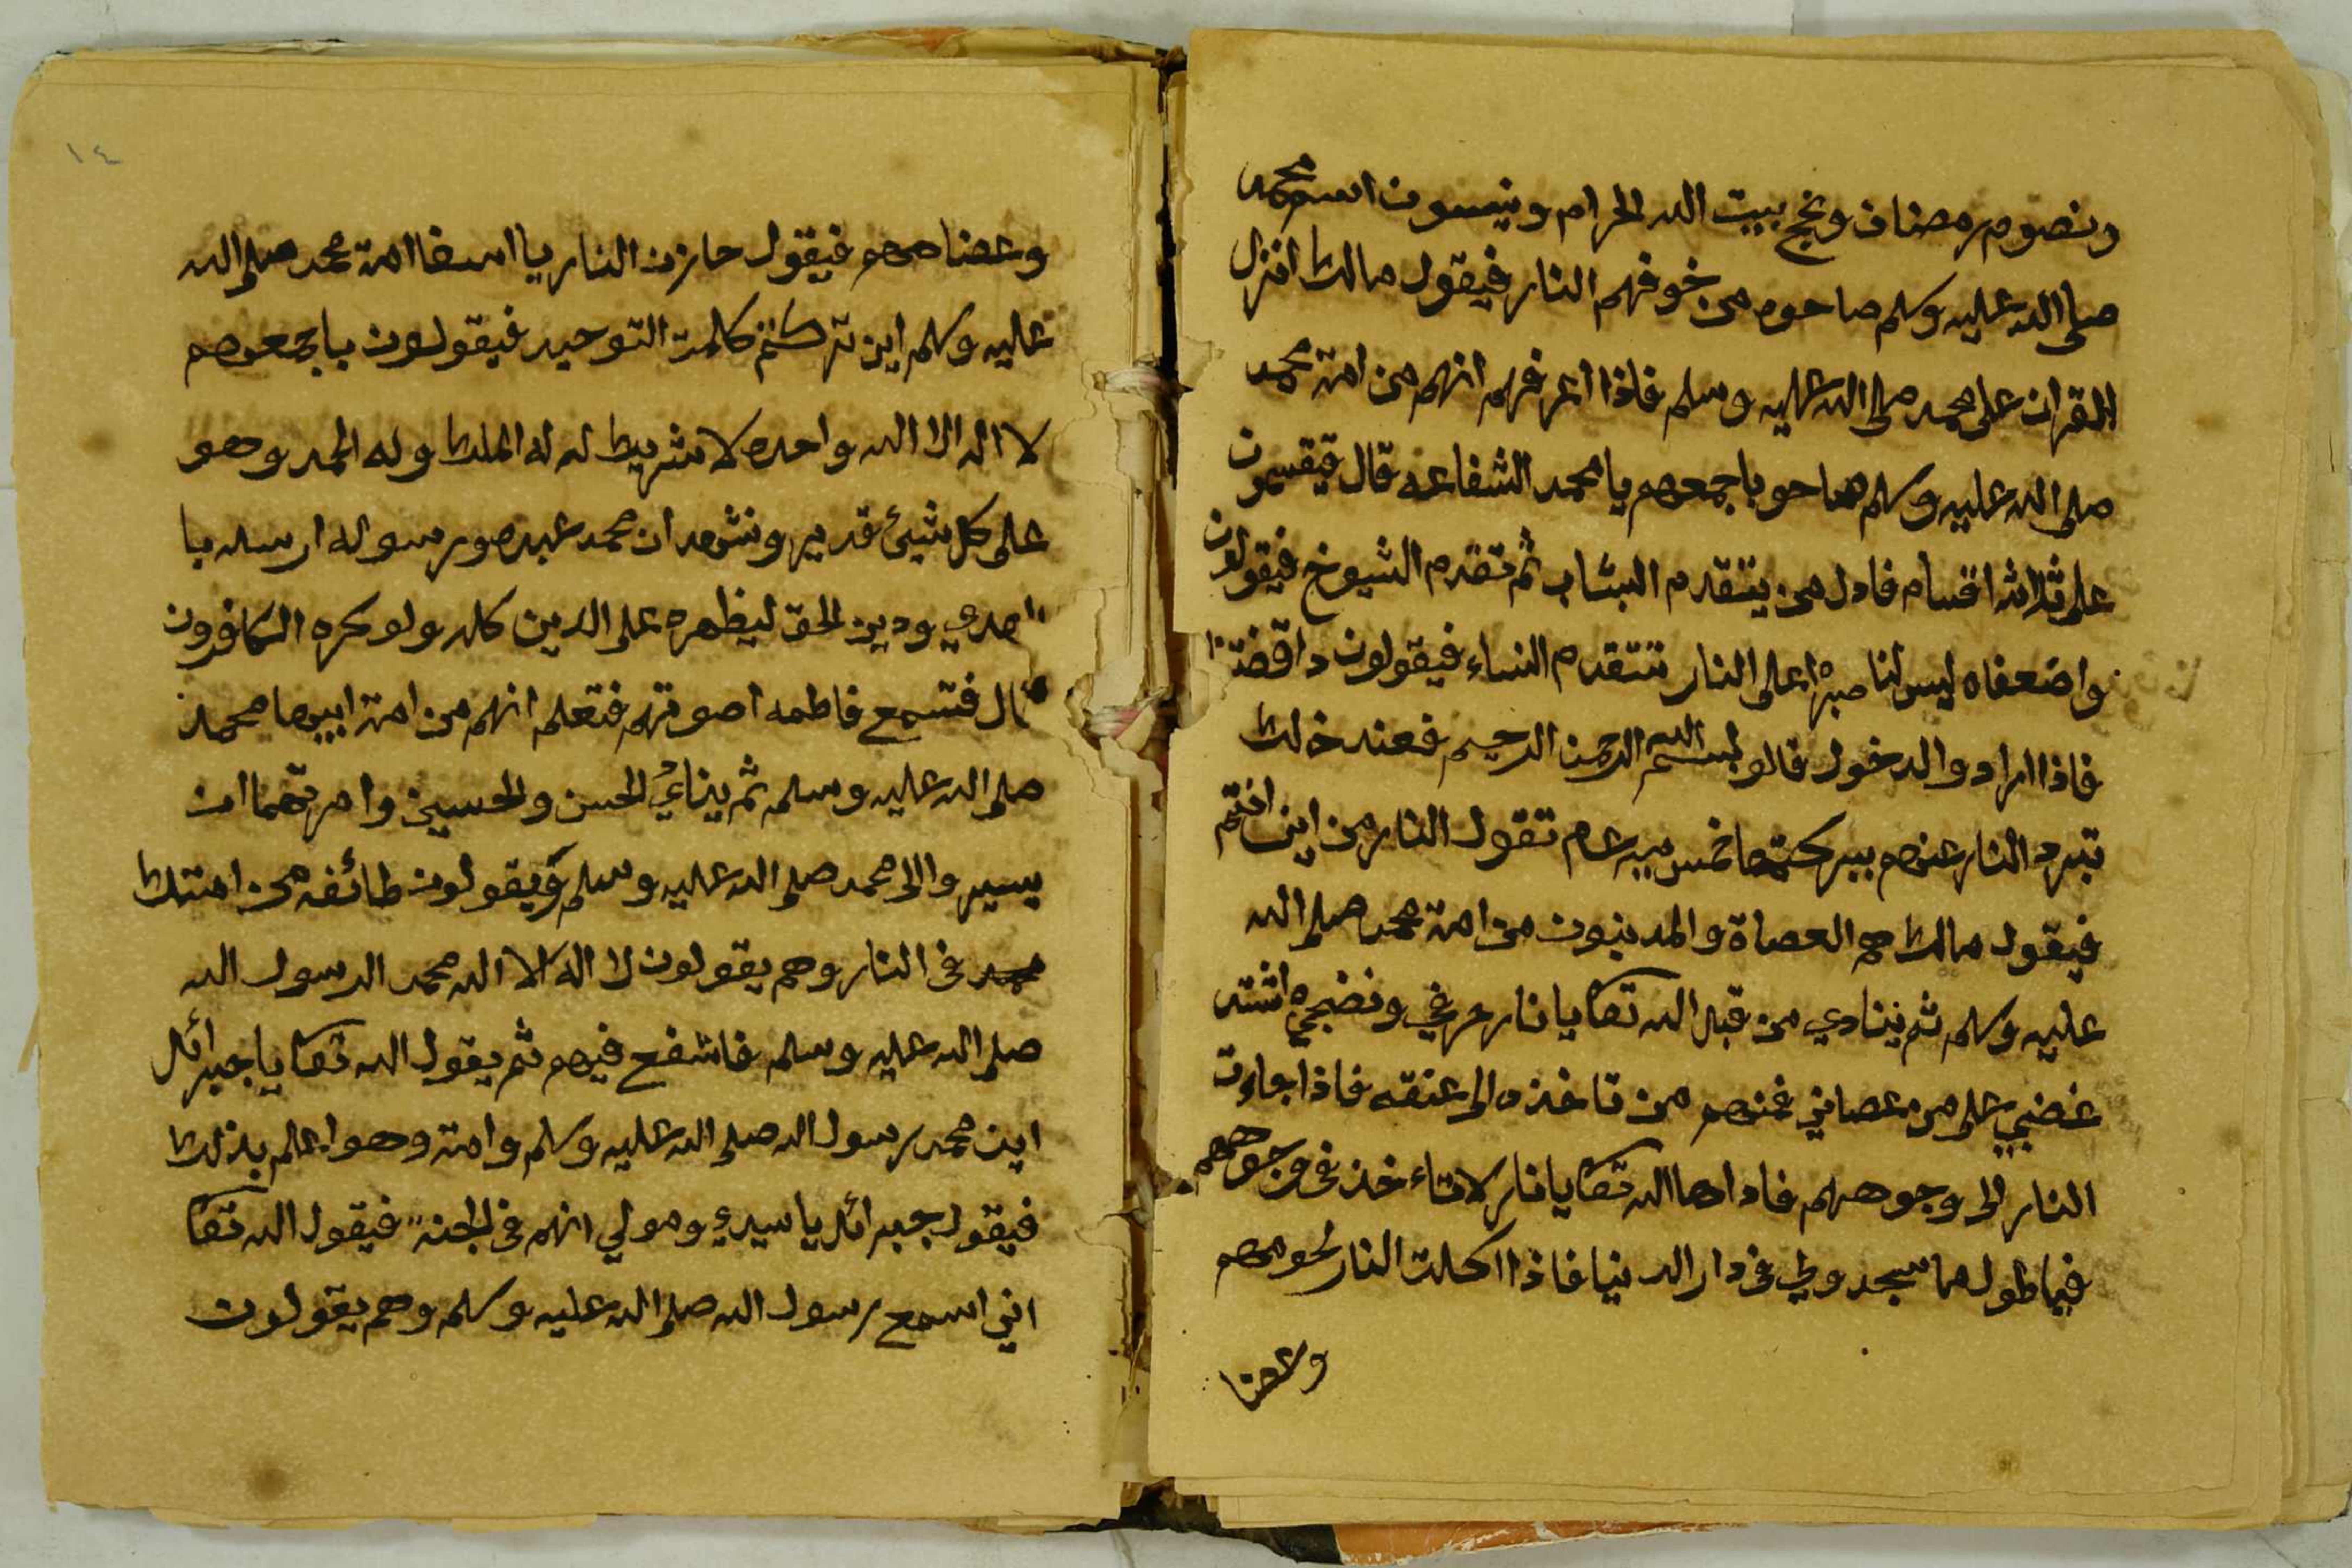 ونصوم رمضان ونحج بيت الله الحرام وينسون اسم محمد
صلى الله عليه وسلم صاحوه من خوفهم النار فيقول مالك انزل
القران على محمد صلى الله عليه وسلم فاذا اعرفهم انهم من امة محمد
صلى الله عليه وسلم صاحو باجمعهم يا محمد الشفاعه قال فيقسمون
على ثلاثة اقسام فاول من يتقدم الشاب ثم تقدم الشيوخ فيقولون
واضعفاه ليس لنا صبرا على النار تتقدم النساء فيقولون
فاذا ارادو الدخول قالو بسم الله الرحمن الرحيم فعند ذلك
تبرد النار عنهم ببركتها خمس ميه عام تقول النار من اين انتم
فيقول مالك هم العصاة والمدينون من امة محمد صلى الله
عليه وسلم ثم ينادي من قبل الله تعا يا نار اشتد
غضبي على من عصاني فمنهم من تاخذه الى عنقه فاذا جاءت
النار الى وجوههم فاداها الله تعا يا نار لا تاءخذ فى وجوههم
فيما طول ما سجدو لي فى دار الدينيا فاذا اكلت النار لحومهم
وعضا
١٤
وعضامهم فيقول حازن النار يا اسفا امة محمد صلى الله
عليه وسلم اين تركتم كلمت التوحيد فيقولون باجمعهم
لا اله الا الله واحده لا شريك له له الملك وله الحمد وهو
على كل شيئ قدير ونشهد ان محمد عبده ورسوله ارسله با
لهدي ودين الحق ليظهره على الدين كله ولو كره الكافرون
قال فتسمع فاطمه اصوتهم فتعلم انهم من امة ابيها محمد
صلى الله عليه وسلم ثم يناءي الحسن والحسين وامرتهما ان
يسيروا الى محمد صلى الله عليه وسلم ويقولون طائفه من امتك
فى النار وهم يقولون لا اله الا الله محمد الرسول الله
صلى الله عليه وسلم فاشفع فيهم ثم يقول الله تعا يا جبرائل
اين محمد رسول الله صلى الله عليه وسلم وامته وهو اعلم بذلك
فيقول جبرائل يا سيدي ومولي انهم فى الجنه فيقول الله تعا
اني اسمع رسول الله صلى الله عليه وسلم وهم يقولون